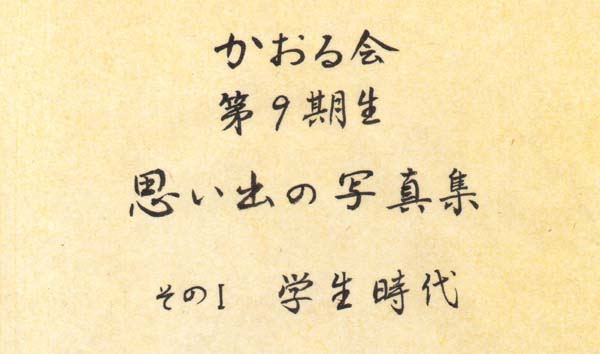 かおる会
第9期生
思い出の写真集
その1 学生時代